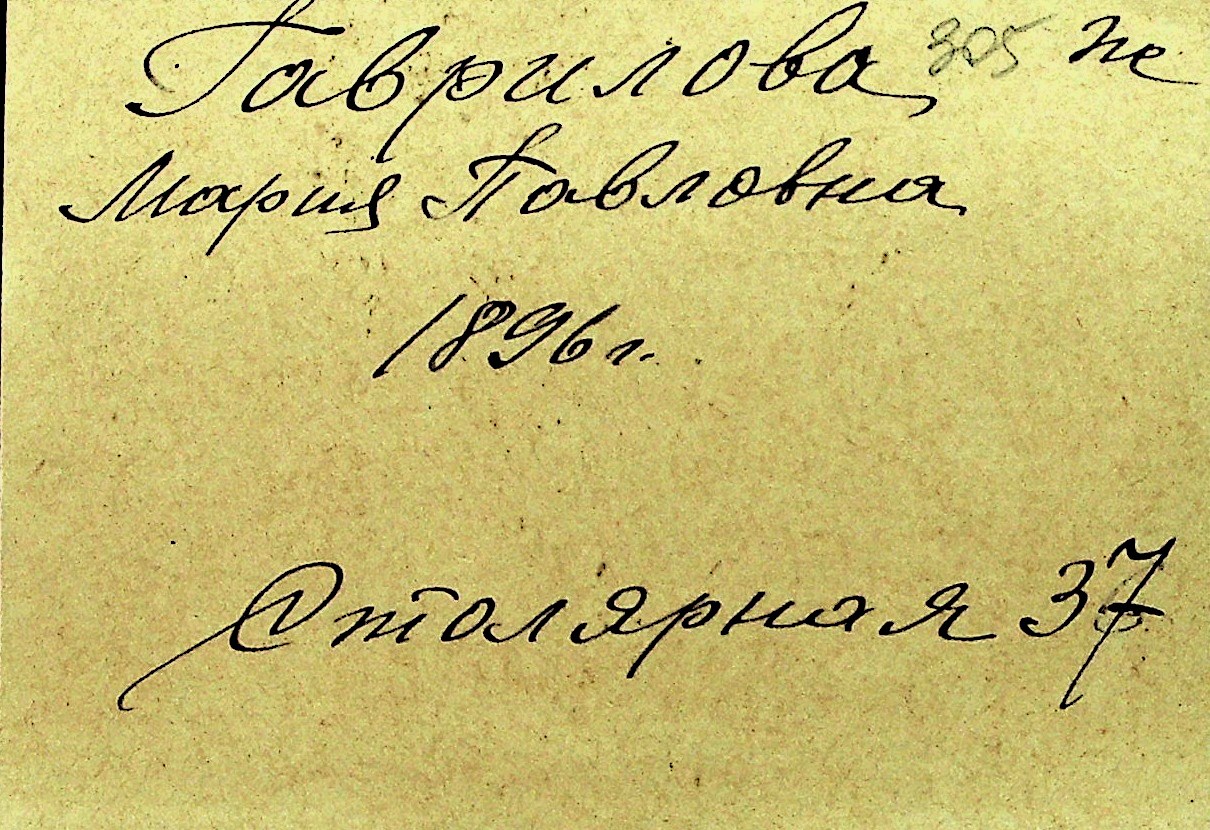 Гаврилова
Мария Павловна
1896 г.
Столярная 37